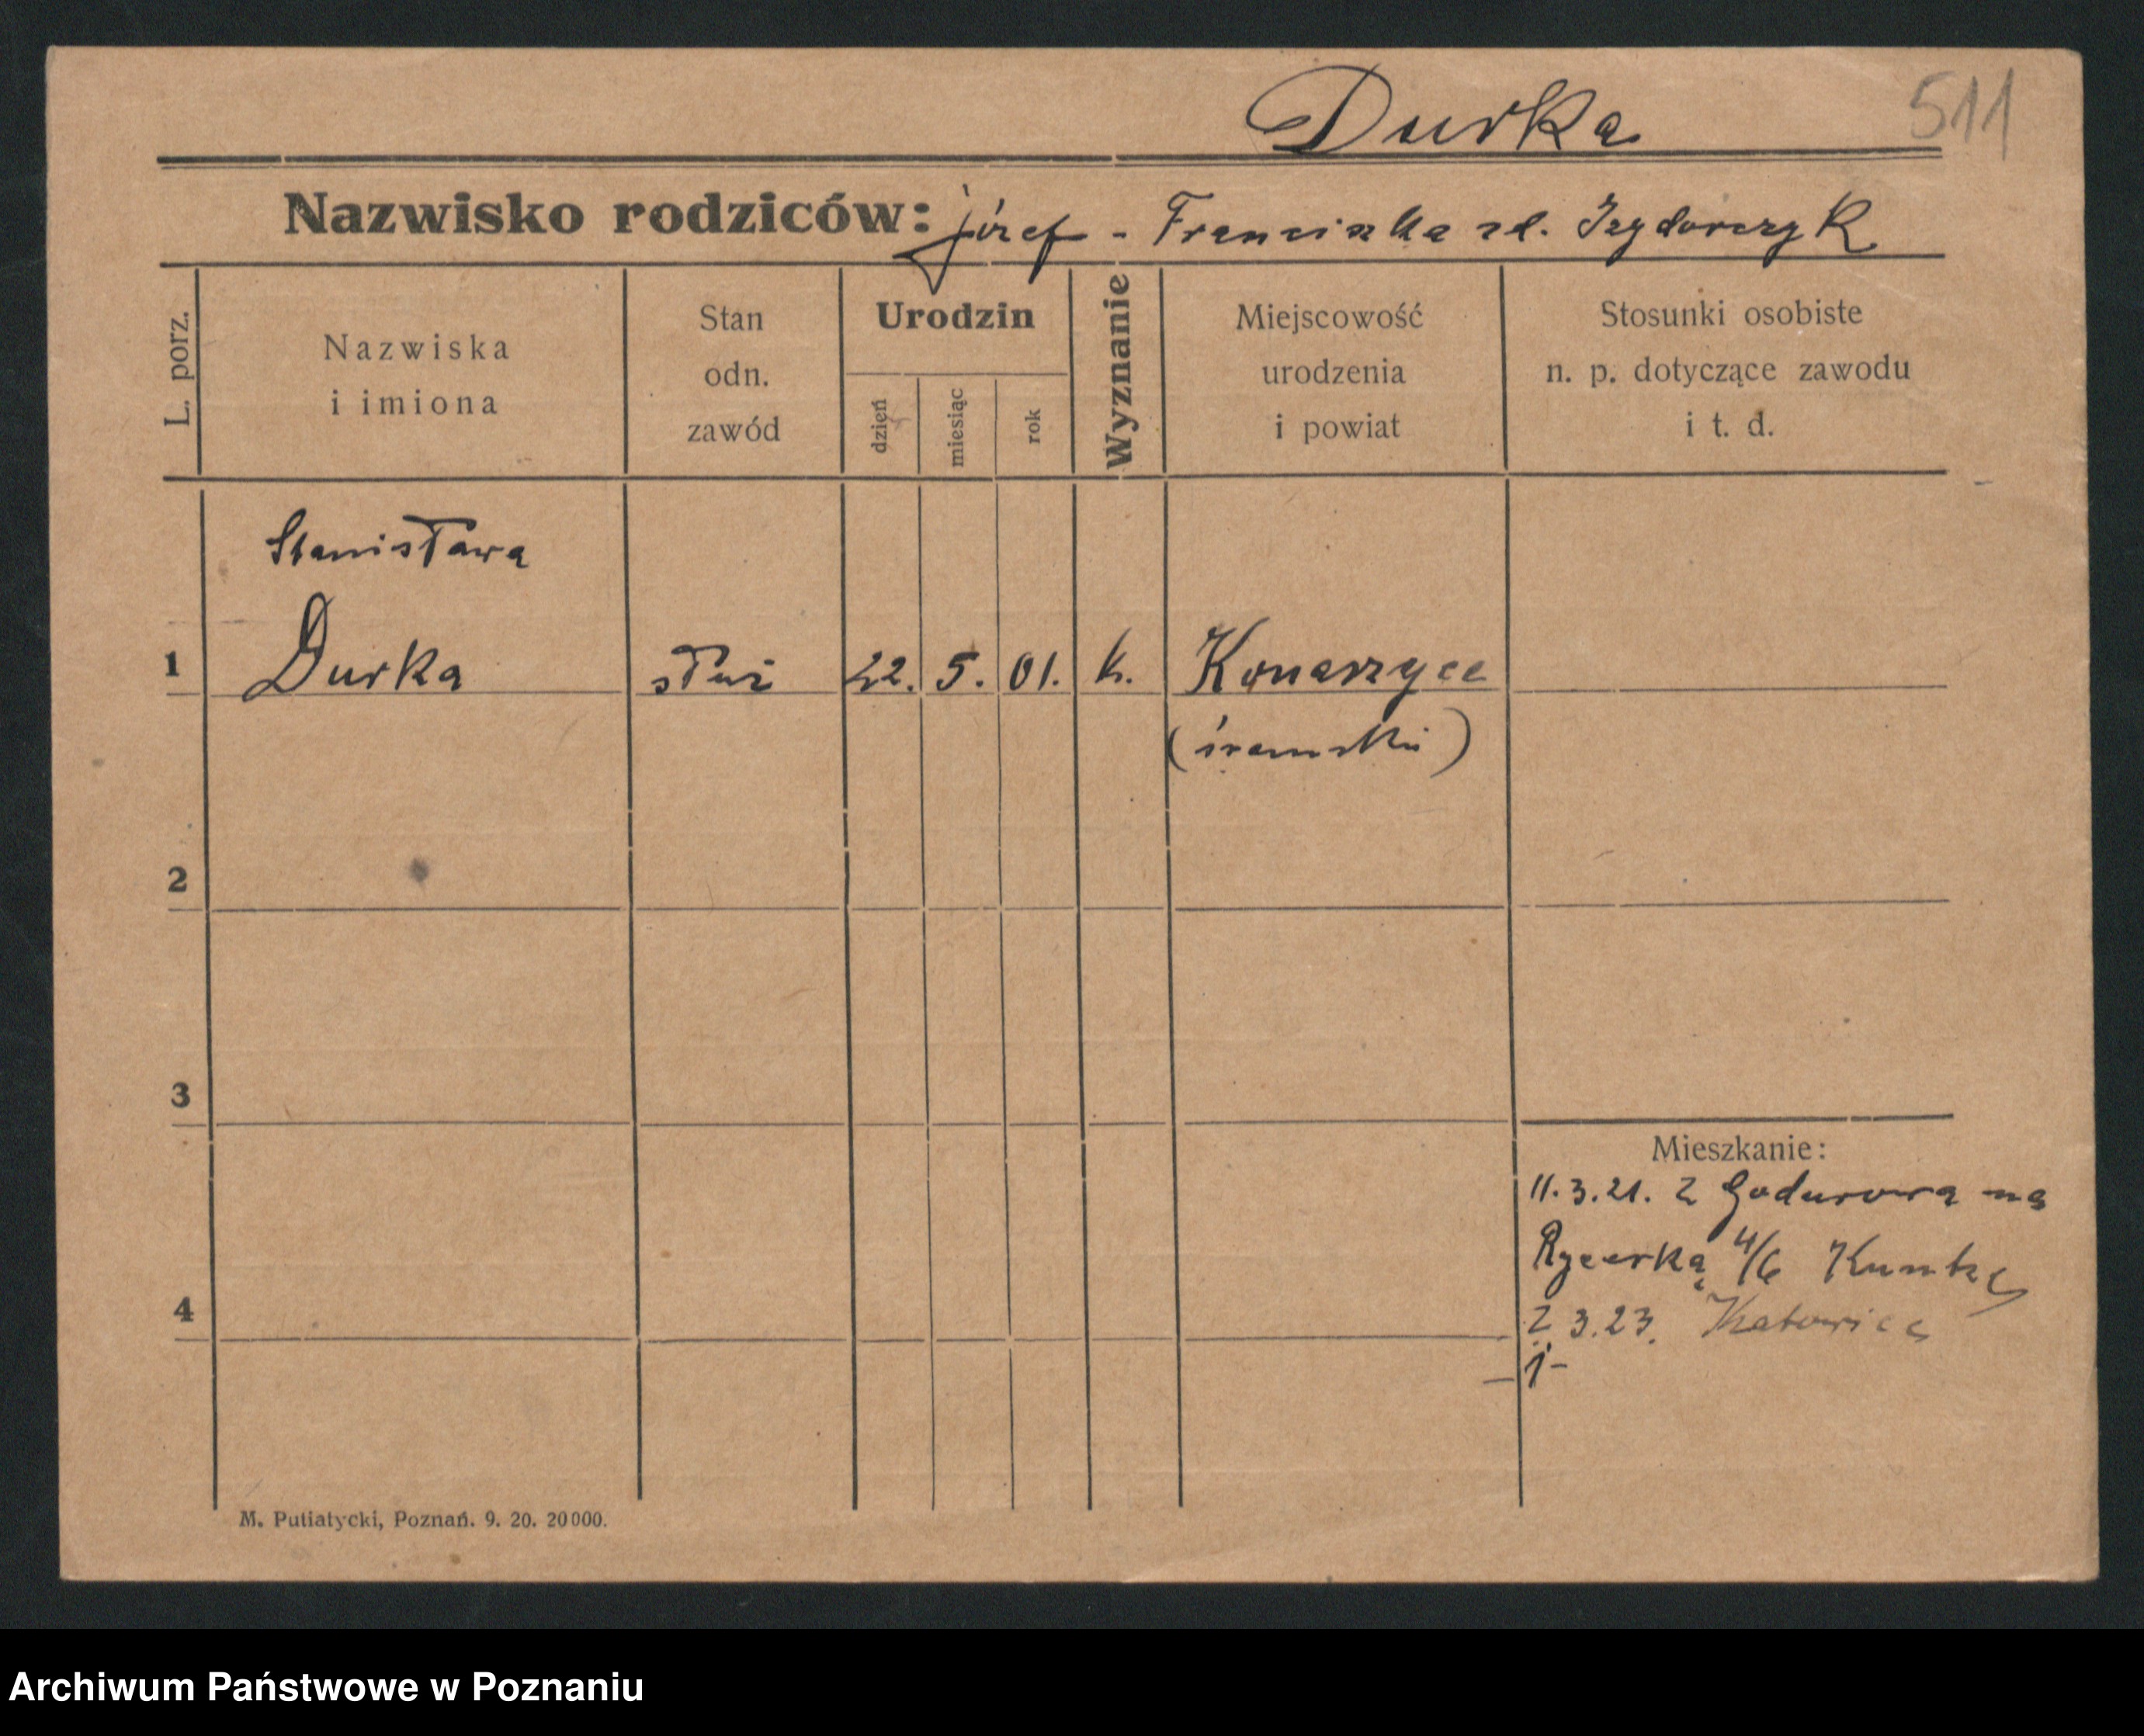 Durka
511
Nazwisko rodziców: józef - Franciszka zd. Izydorczyk
L. porz.
Nazwiska
i imiona
Stan
odn.
zawód
Urodzin
dzień
miesiąc
rok
Wyznanie
Miejscowość
urodzenia
i powiat
Stosunki osobiste
n. p. dotyczące zawodu
i t. d.
Stanisława
1 Durka służ 22. 5. 01. k. Konarzyce
(śremski)
2
3
4
Mieszkanie:
11.3.21. z Godurowa na
Rycerką 4/6 Kuntze
2 3.23. Katowice
M. Putiatycki, Poznań. 9. 20. 20000.
Archiwum Państwowe w Poznaniu